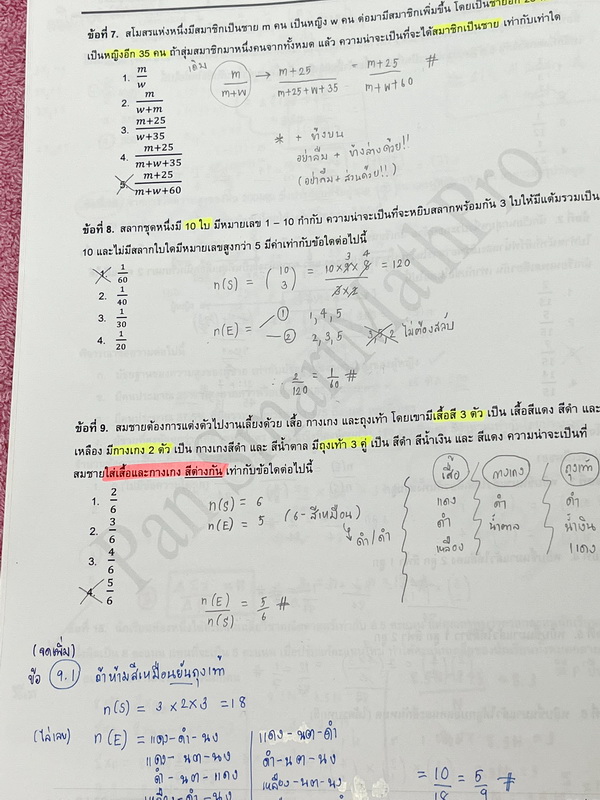 ข้อที่ 7. สโมสรแห่งหนึ่งมีสมาชิกเป็นชาย m คน เป็นหญิง w คน ต่อมามีสมาชิกเพิ่มขึ้น โดยเป็นชายอีก 25
เป็นหญิงอีก 35 คน ถ้าสุ่มสมาชิกมาหนึ่งคนจากทั้งหมด แล้ว ความน่าจะเป็นที่จะได้สมาชิกเป็นชาย เท่ากับเท่าใด
1. m/w
เดิม m/(m+w) → (m+25)/(m+25+w+35) = (m+25)/(m+w+60) #
2. m/(w+m)
3. (m+25)/(w+35)
* + ข้างบน
อย่าลืม + ข้างล่างด้วย!!
4. (m+25)/(m+w+35)
(อย่าลืม + ส่วนด้วย!!)
5. (m+25)/(m+w+60)
ข้อที่ 8. สลากชุดหนึ่งมี 10 ใบ มีหมายเลข 1 – 10 กำกับ ความน่าจะเป็นที่จะหยิบสลากพร้อมกัน 3 ใบให้มีแต้มรวมเป็น
10 และไม่มีสลากใบใดมีหมายเลขสูงกว่า 5 มีค่าเท่ากับข้อใดต่อไปนี้
1. 1/60
n(S) = (10 3) = (10×9×8)/(3×2) = 120
3 4
2. 1/40
3. 1/30
n(E) = ① 1,4,5
4. 1/20
② 2,3,5 3,5,2 ไม่ต้องสลับ
∴ 2/120 = 1/60 #
ข้อที่ 9. สมชายต้องการแต่งตัวไปงานเลี้ยงด้วย เสื้อ กางเกง และถุงเท้า โดยเขามีเสื้อสี 3 ตัว เป็น เสื้อสีแดง สีดำ และ
เหลือง มีกางเกง 2 ตัว เป็น กางเกงสีดำ และ สีน้ำตาล มีถุงเท้า 3 คู่ เป็น สีดำ สีน้ำเงิน และ สีแดง ความน่าจะเป็นที่
สมชายใส่เสื้อและกางเกง สีต่างกัน เท่ากับข้อใดต่อไปนี้
เสื้อ กางเกง ถุงเท้า
แดง ดำ ดำ
ดำ น้ำตาล น้ำเงิน
เหลือง แดง
1. 2/6
n(S) = 6
2. 3/6
n(E) = 5 (6-สีเหมือน)
ดำ/ดำ
3. 4/6
4. 5/6
n(E)/n(S) = 5/6 #
(จดเพิ่ม)
ข้อ 9.1 ถ้าห้ามสีเหมือนยันถุงเท้า
n(S) = 3 × 2 × 3 = 18
(ไล่เลข) n(E) = แดง-ดำ-นง
แดง-นต-ดำ
แดง-นต-นง
ดำ-นต-นง
ดำ-นต-แดง
เหลือง-นต-นง
เหลือง-ดำ-นง
= 10/18 = 5/9 #
PanSmartMathPro